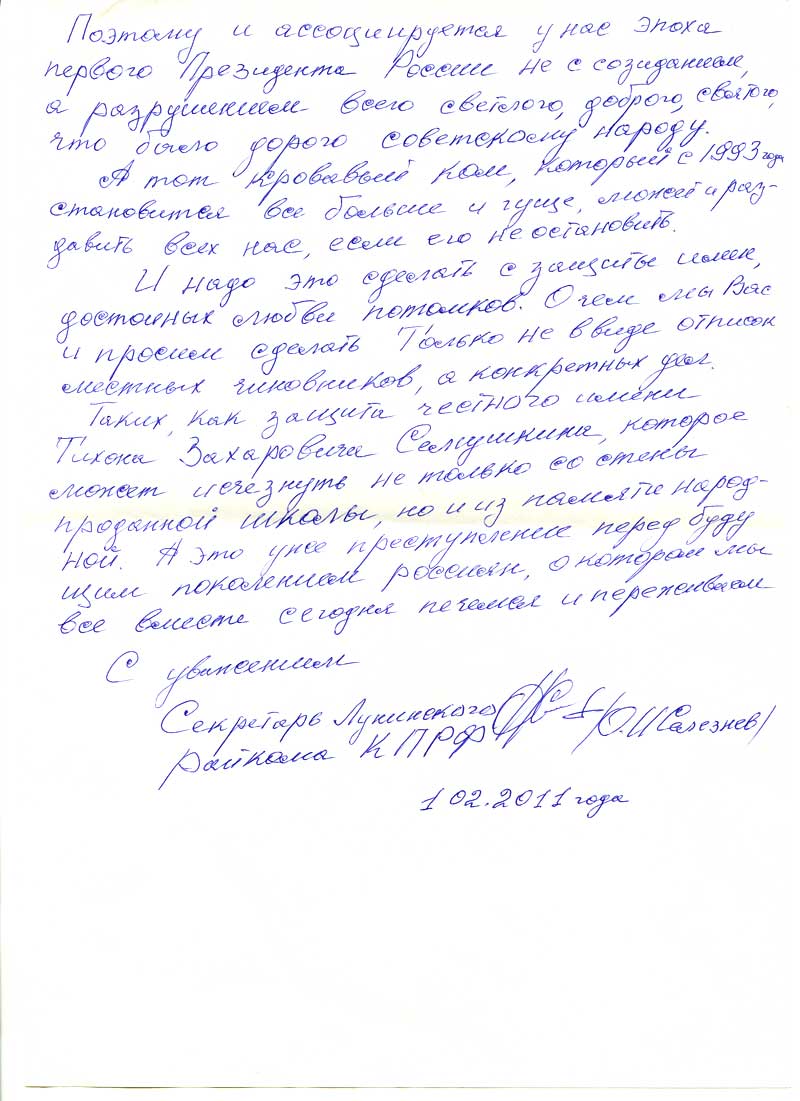 Поэтому и ассоциируется у нас эпоха
первого Президента России не с созиданием,
а разрушением всего светлого, доброго, святого,
что было дорого советскому народу.
А тот кровавый ком, который с 1993 года
становится все больше и гуще, может и раз-
давить всех нас, если его не остановить.
И надо это сделать с защиты имен,
достойных любви потомков. О чем мы Вас
и просим сделать Только не в виде отписок
местных чиновников, а конкретных дел.
Таких, как защита честного имени
Тихона Захаровича Семушкина, которое
может исчезнуть не только со стены
проданной школы, но и из памяти народ-
ной. А это уже преступление перед буду
щим поколением россиян, о котором мы
все вместе сегодня печемся и переживаем
С уважением
Секретарь Лунинского
райкома КПРФ /О.И Селезнев/
1 02.2011 года